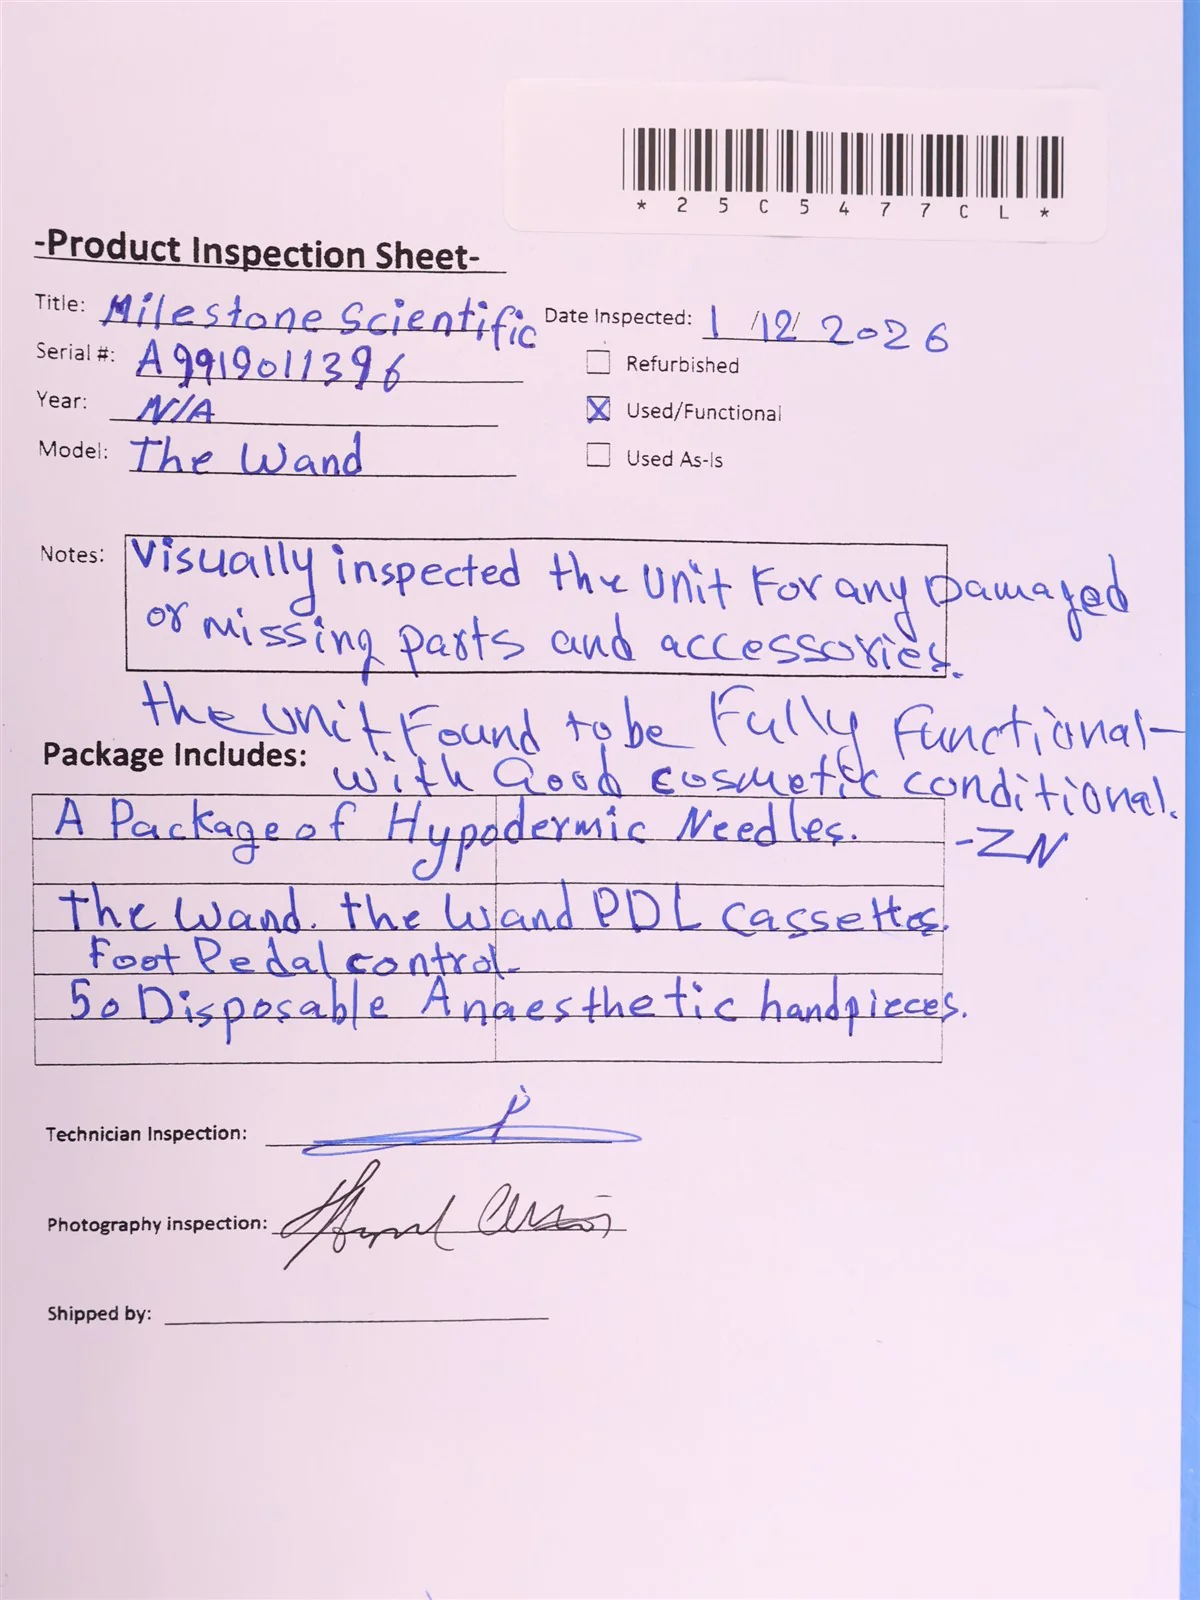 * 2 5 C 5 4 7 7 C L *
-Product Inspection Sheet-
Title: Milestone Scientific
Date Inspected: 1 /12/ 2026
Serial #: A9919011396
Refurbished
Year: N/A
X Used/Functional
Model: The Wand
Used As-Is
Notes: Visually inspected the Unit For any Damaged
or missing parts and accessories.
the unit Found to be Fully functional-
Package Includes:
with Good cosmetic conditional.
A Package of Hypodermic Needles.
-ZN
The Wand. the Wand PDL cassettes.
Foot Pedal control-
50 Disposable Anaesthetic handpieces.
Technician Inspection:
Photography inspection:
Shipped by: